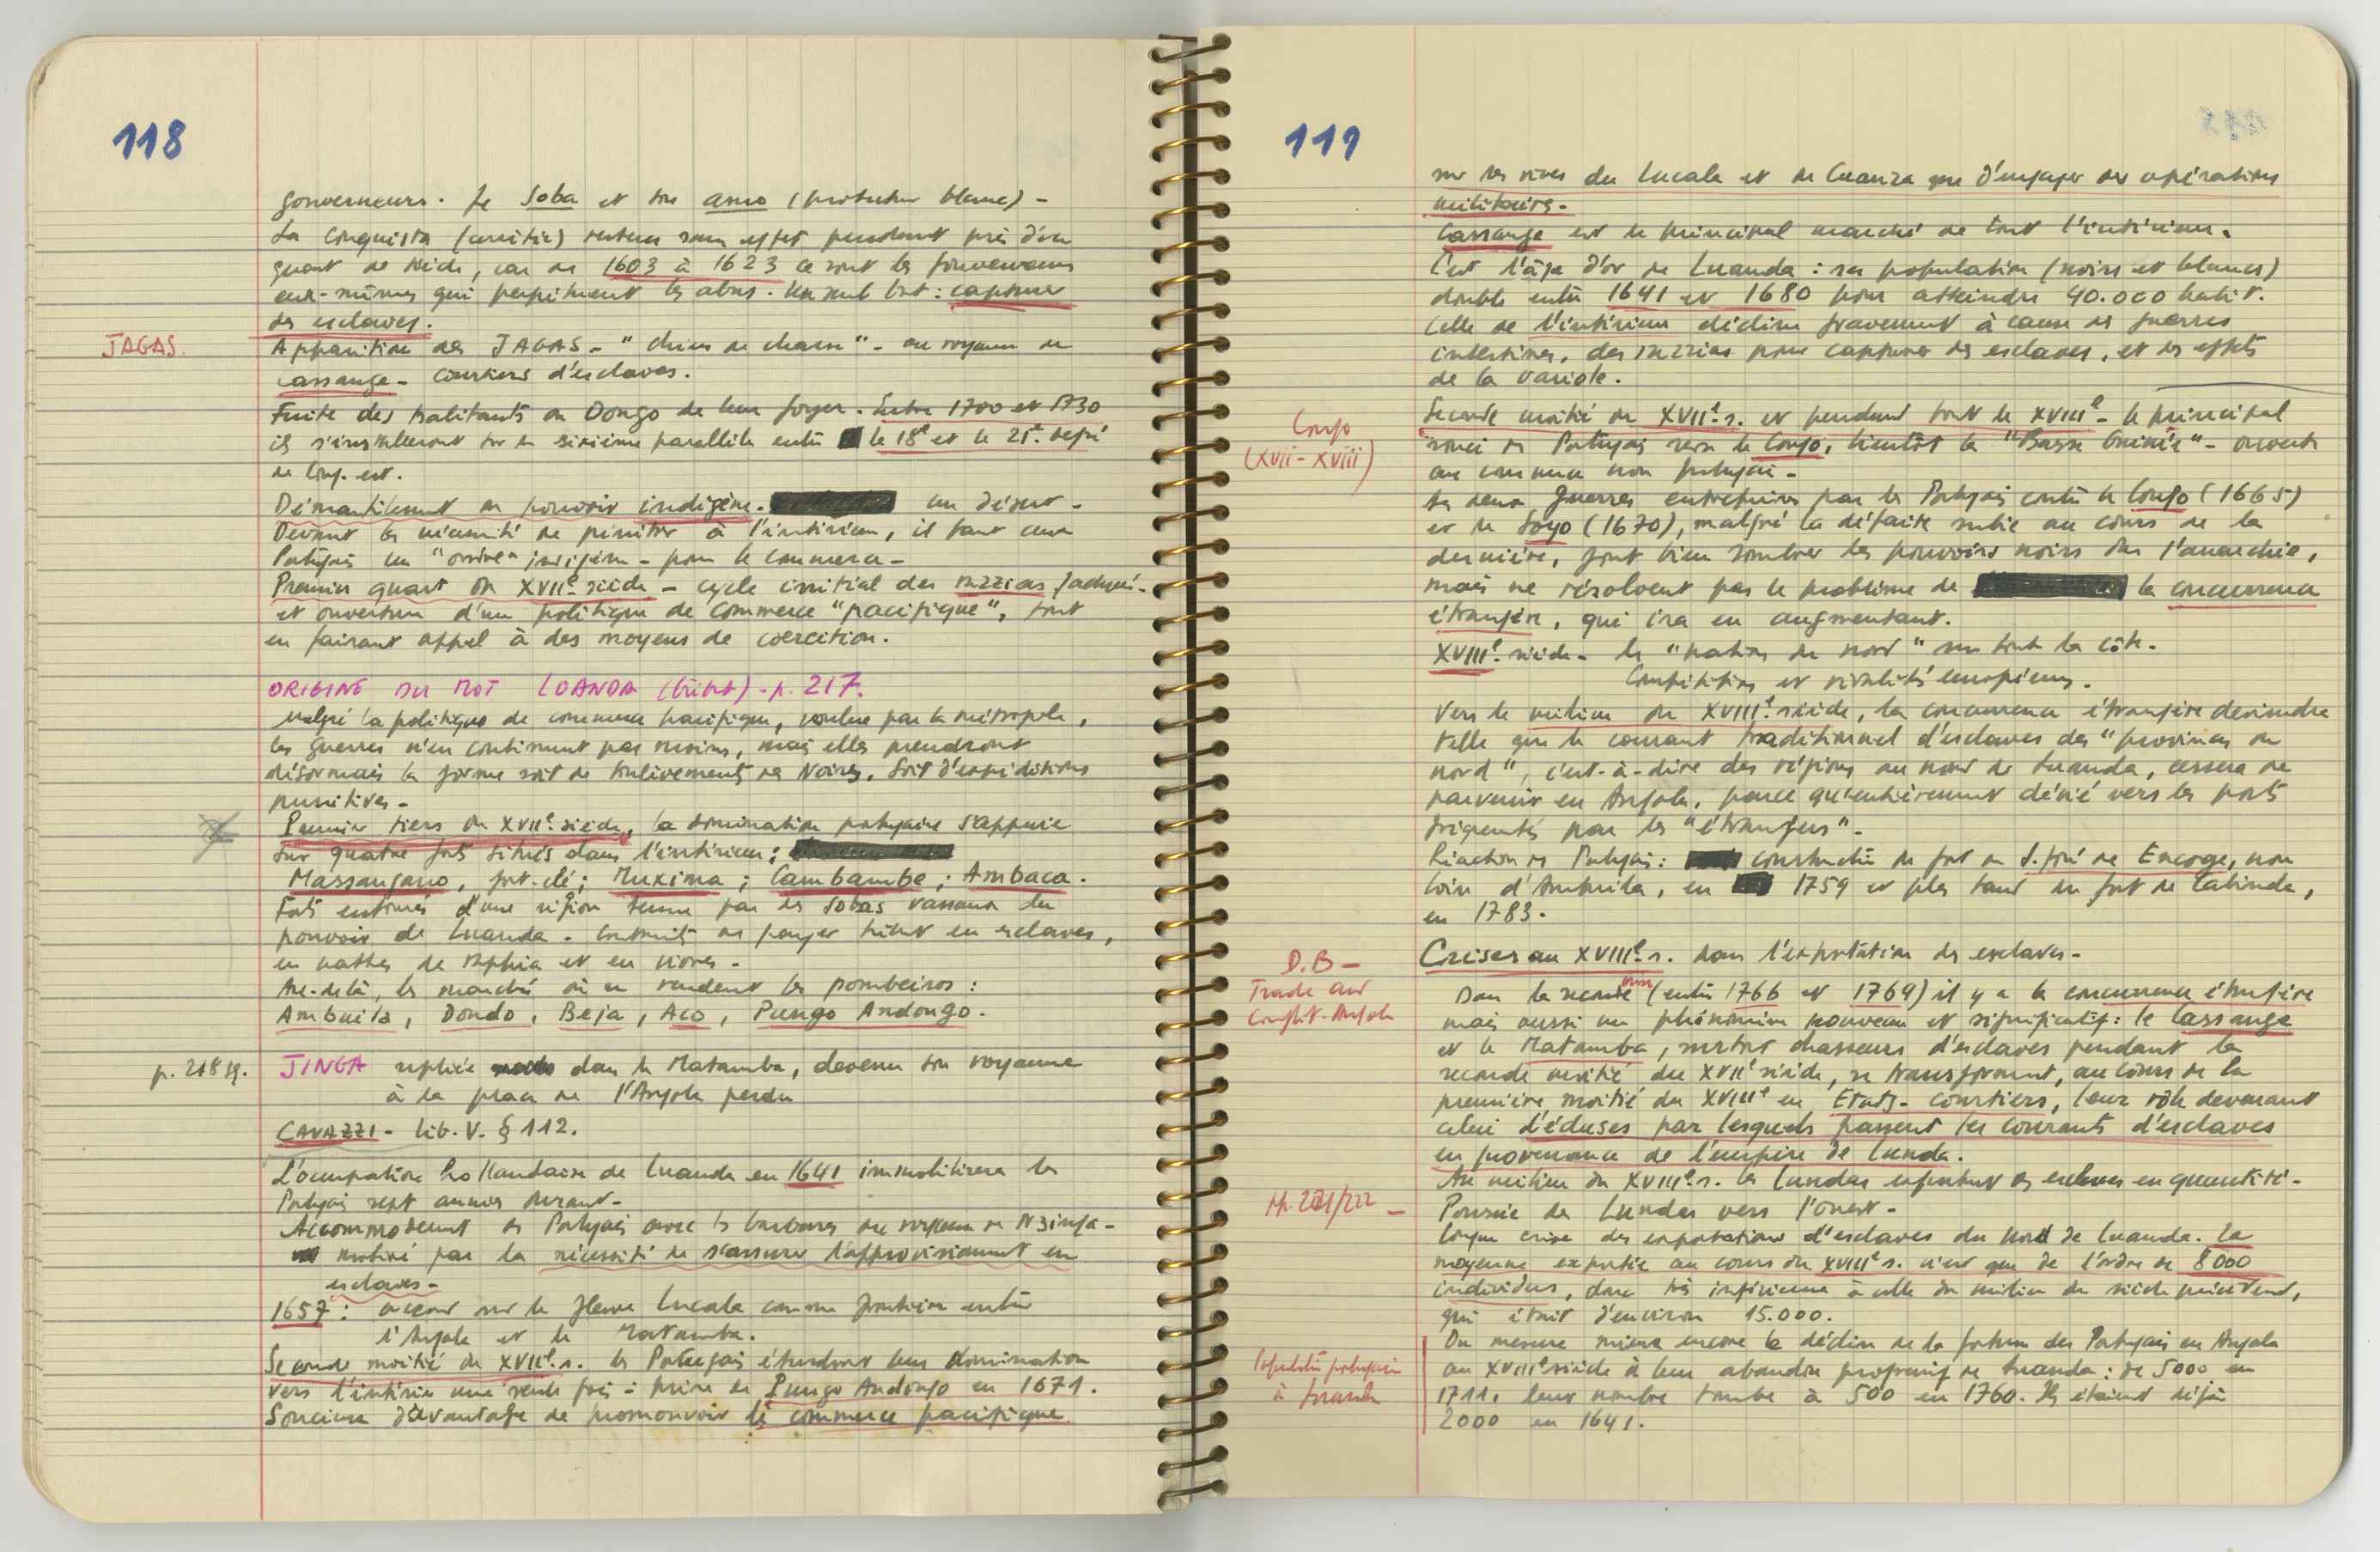 118
gouverneurs. Le Soba et son amo (protecteur blanc) -
La Conquista (arrêtée) restera sans effet pendant près d'un
quart de siècle, car de 1603 à 1623 ce sont les gouverneurs
eux-mêmes qui perpétuent les abus. Un seul but : capturer
des esclaves.
JAGAS.
Apparition des JAGAS - "chiens de chasse" - au royaume de
Cassange - courtiers d'esclaves.
Fuite des habitants du Dongo de leur foyer. Entre 1700 et 1730
ils s'installeront sur le sixième parallèle entre le 18e et le 21e degré
de long. est.
Démantèlement du pouvoir indigène. un désert -
Devant la nécessité de pénétrer à l'intérieur, il faut aux
Portugais un "ordre" indigène - pour le commerce -
Premier quart du XVIIe siècle - cycle initial des razzias
et ouverture d'une politique de commerce "pacifique", tout
en faisant appel à des moyens de coercition.
ORIGINE DU MOT LOANDA (tribut) - p. 217.
Malgré la politique de commerce pacifique, voulue par la métropole,
les guerres n'en continuent pas moins, mais elles prendront
désormais la forme soit de enlèvements de Noirs, soit d'expéditions
punitives -
Premier tiers du XVIIe siècle, la domination portugaise s'appuie
sur quatre forts situés dans l'intérieur :
Massangano, fort-clé ; Muxima ; Cambambe ; Ambaca.
Forts entourés d'une région tenue par des Sobas vassaux du
pouvoir de Luanda. Contraints de payer tribut en esclaves,
en nattes de raphia et en vivres -
Au-delà, les marchés où se rendent les pombeiros :
Ambuila, Dondo, Beja, Aco, Pungo Andongo.
p. 218 sq.
JINGA repliée dans le Matamba, devenu son royaume
à la place de l'Angola perdu
CAVAZZI - lib. V. § 112.
L'occupation hollandaise de Luanda en 1641 immobilisera les
Portugais sept années durant -
Accommodement des Portugais avec les du royaume de Nzinga -
motivé par la nécessité de s'assurer l'approvisionnement en
esclaves -
1657 : accord sur le fleuve Lucala comme frontière entre
l'Angola et le Matamba.
Seconde moitié du XVIIe s. les Portugais étendront leur domination
vers l'intérieur une seule fois : prise de Pungo Andongo en 1671.
Soucieux davantage de promouvoir le commerce pacifique
119
sur les rives du Lucala et du Cuanza que d'engager des opérations
militaires -
Cassange est le principal marché de tout l'intérieur.
C'est l'âge d'or de Luanda : sa population (noirs et blancs)
double entre 1641 et 1680 pour atteindre 40.000 habit.
Celle de l'intérieur décline gravement à cause des guerres
intestines, des razzias pour capturer des esclaves, et des effets
de la variole.
Congo
(XVII - XVIII)
Seconde moitié du XVIIe s. et pendant tout le XVIIIe - le principal
souci des Portugais sera le Congo, bientôt la "Basse Guinée" - ouverte
au commerce non portugais -
Les deux guerres entreprises par les Portugais contre le Congo (1665)
et le Soyo (1670), malgré la défaite subie au cours de la
dernière, font bien sombrer les pouvoirs noirs dans l'anarchie,
mais ne résolvent pas le problème de la concurrence
étrangère, qui ira en augmentant.
XVIIIe siècle - les "nations du nord" sur toute la côte.
Compétition et rivalités européennes.
Vers le milieu du XVIIIe siècle, la concurrence étrangère deviendra
telle que le courant traditionnel d'esclaves des "provinces du
nord", c'est-à-dire des régions au nord de Luanda, cessera de
parvenir en Angola, parce qu'entièrement dévié vers les ports
fréquentés par les "étrangers" -
Réaction des Portugais : construction du fort de S. José de Encoge, non
loin d'Ambuila, en 1759 et plus tard du fort de Cabinda,
en 1783.
Crises au XVIIIe s. dans l'exportation des esclaves -
D.B -
Trade and
Conflict - Angola
Dans la seconde crise (entre 1766 et 1769) il y a la concurrence étrangère
mais aussi un phénomène nouveau et significatif : le Cassange
et le Matamba, surtout chasseurs d'esclaves pendant la
seconde moitié du XVIIe siècle, se transforment, au cours de la
première moitié du XVIIIe en Etats - courtiers, leur rôle devenant
celui d'écluses par lesquels passent les courants d'esclaves
en provenance de l'empire de Lunda.
Au milieu du XVIIIe s. les Lundas exportent des esclaves en quantité -
pp. 221/222 -
Poussée des Lundas vers l'ouest -
Longue crise des exportations d'esclaves du Nord de Luanda. La
moyenne exportée au cours du XVIIIe s. n'est que de l'ordre de 8000
individus, donc très inférieure à celle du milieu du siècle précédent,
qui était d'environ 15.000.
Population portugaise
à Luanda
On mesure mieux encore le déclin de la fortune des Portugais en Angola
au XVIIIe siècle à leur abandon progressif de Luanda : de 5000 en
1711, leur nombre tombe à 500 en 1760. Ils étaient déjà
2000 en 1641.